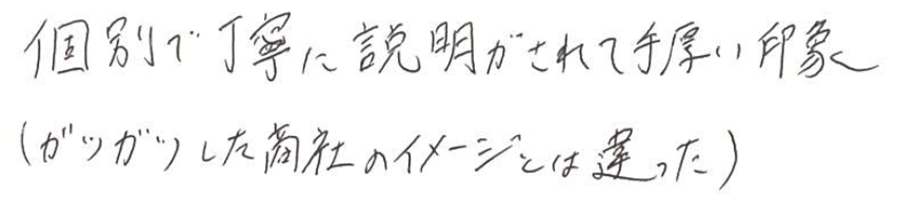 個別で丁寧に説明がされて手厚い印象
(ガツガツした商社のイメージとは違った)